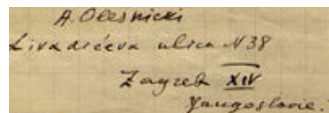 A. Olesnicki
Livadićeva ulica N38
Zagreb XIV
Yaugoslavie.